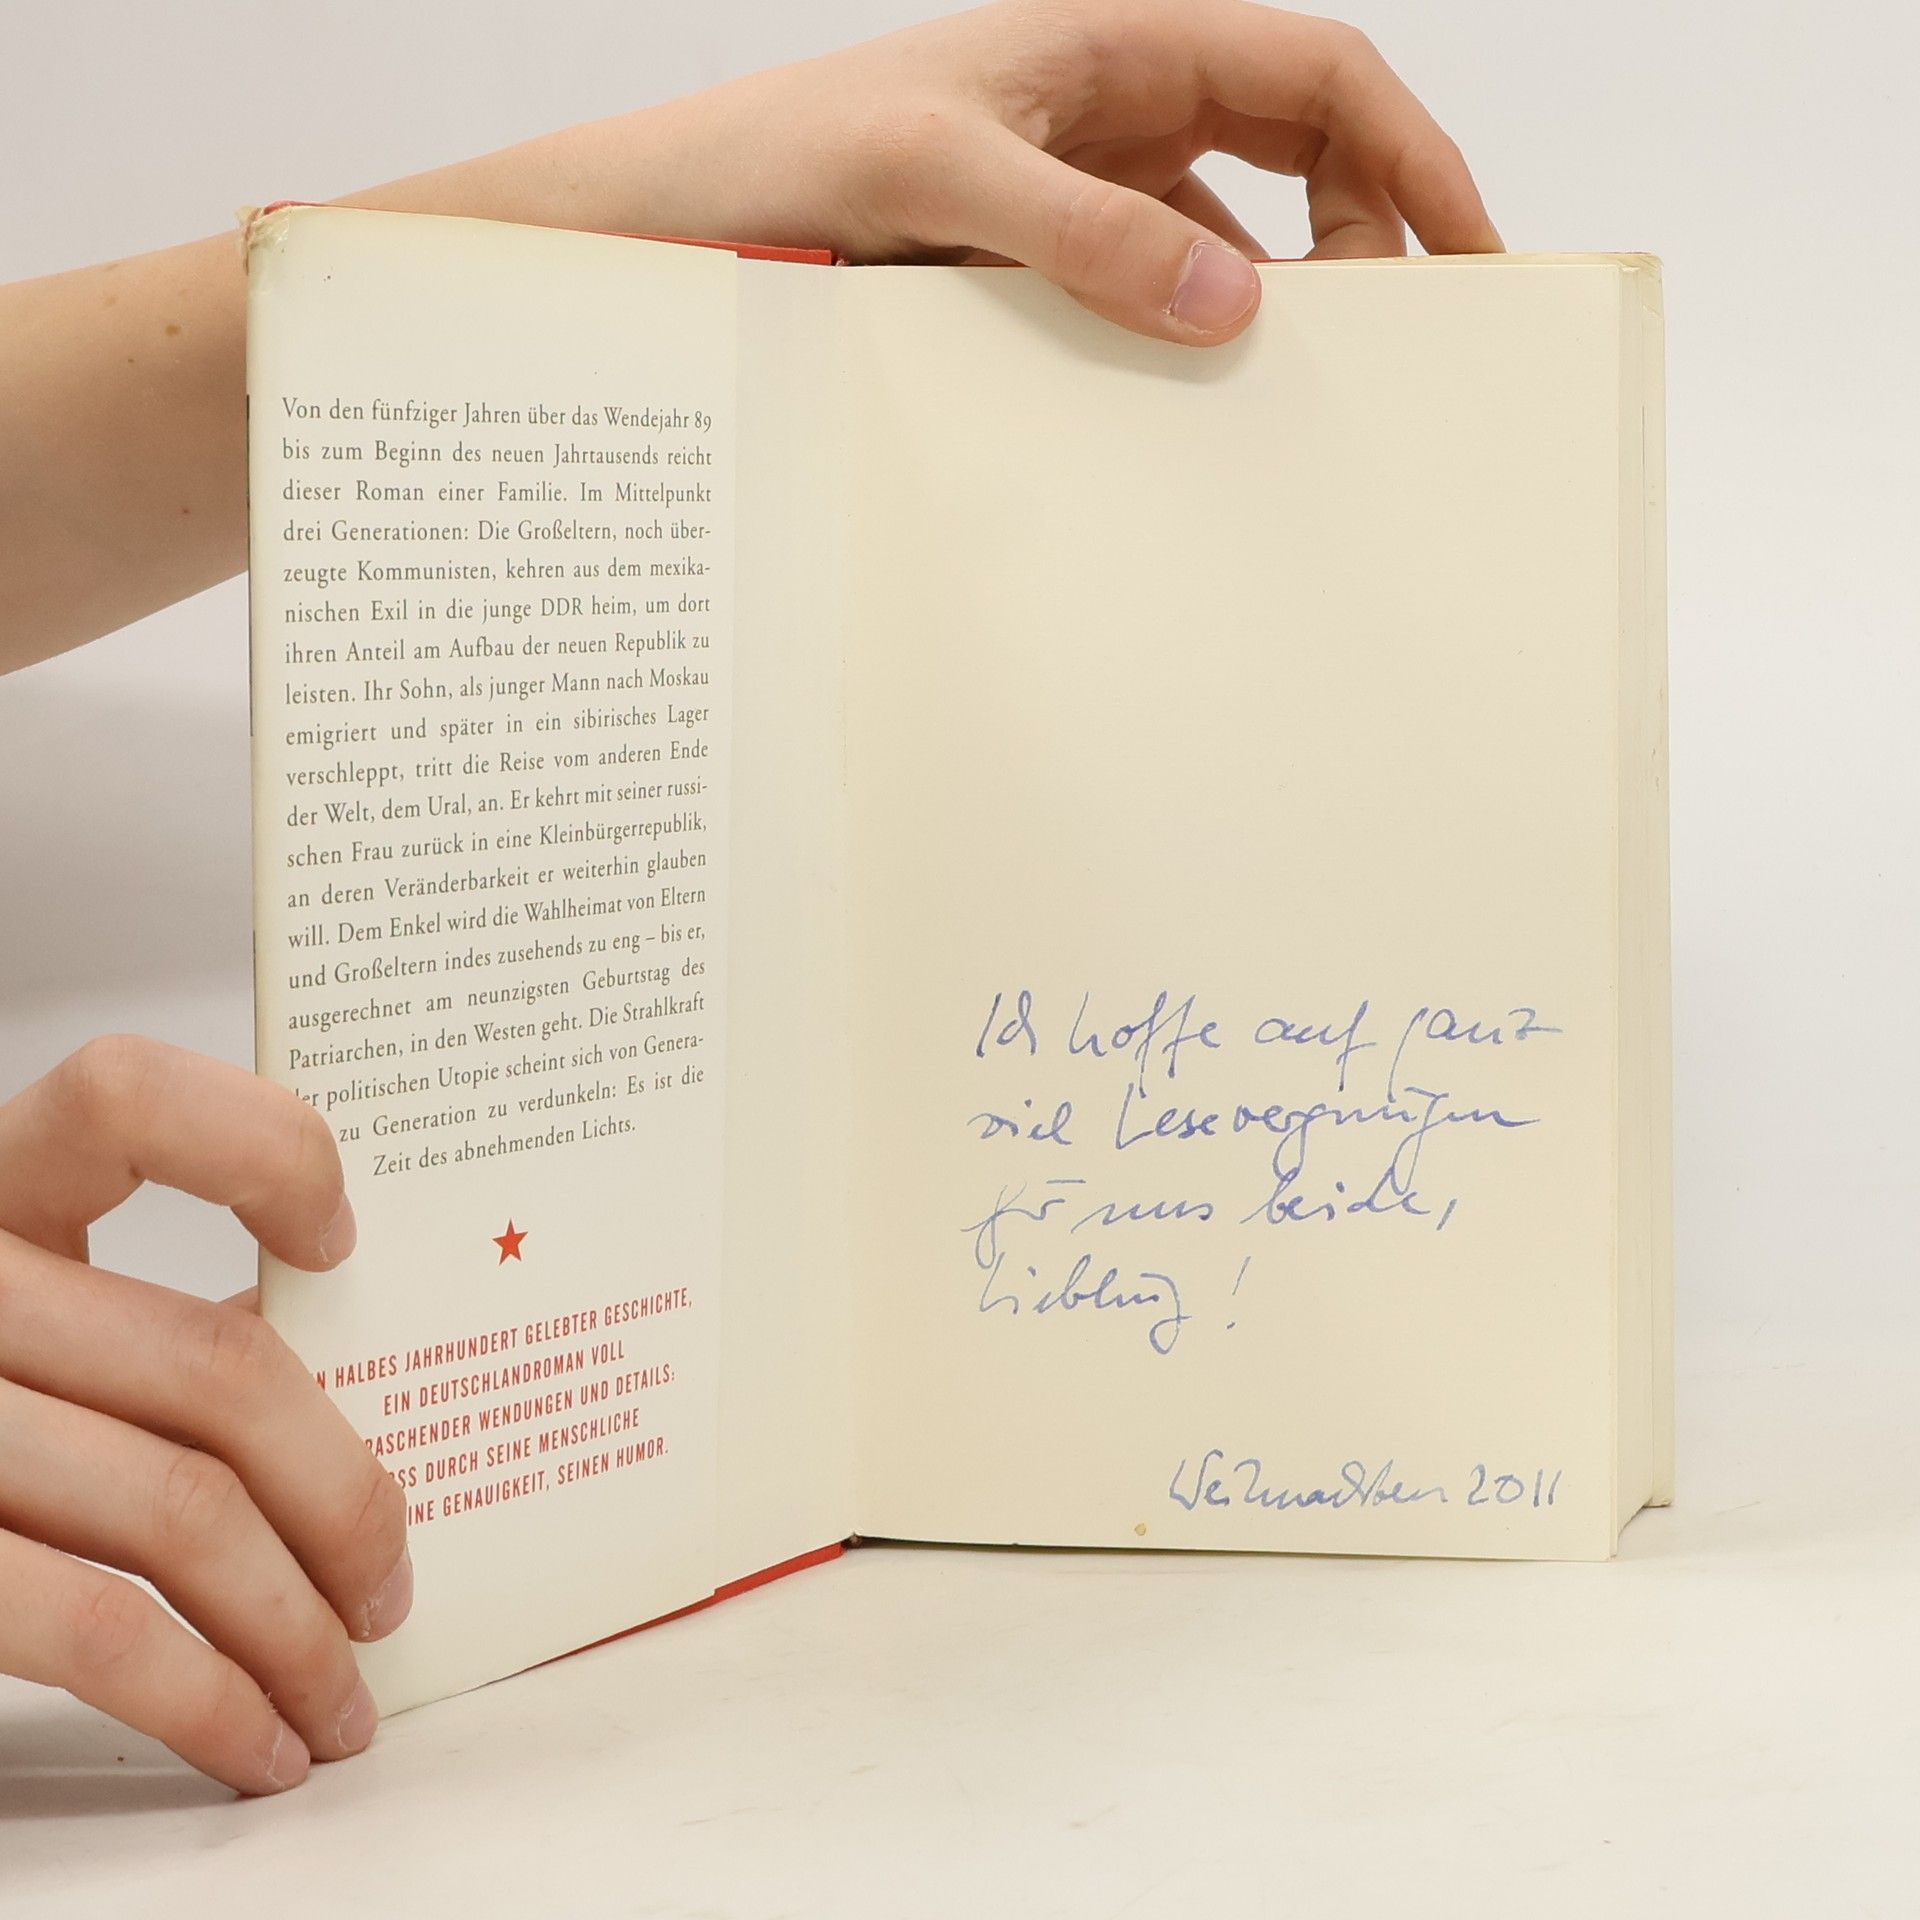 Von den fünfziger Jahren über das Wendejahr 89
bis zum Beginn des neuen Jahrtausends reicht
dieser Roman einer Familie. Im Mittelpunkt
drei Generationen: Die Großeltern, noch über-
zeugte Kommunisten, kehren aus dem mexika-
nischen Exil in die junge DDR heim, um dort
ihren Anteil am Aufbau der neuen Republik zu
leisten. Ihr Sohn, als junger Mann nach Moskau
emigriert und später in ein sibirisches Lager
verschleppt, tritt die Reise vom anderen Ende
der Welt, dem Ural, an. Er kehrt mit seiner russi-
schen Frau zurück in eine Kleinbürgerrepublik,
an deren Veränderbarkeit er weiterhin glauben
will. Dem Enkel wird die Wahlheimat von Eltern
und Großeltern indes zusehends zu eng – bis er,
ausgerechnet am neunzigsten Geburtstag des
Patriarchen, in den Westen geht. Die Strahlkraft
der politischen Utopie scheint sich von Genera-
zu Generation zu verdunkeln: Es ist die
Zeit des abnehmenden Lichts.
HALBES JAHRHUNDERT GELEBTER GESCHICHTE,
EIN DEUTSCHLANDROMAN VOLL
RASCHENDER WENDUNGEN UND DETAILS:
DURCH SEINE MENSCHLICHE
GENAUIGKEIT, SEINEN HUMOR.
Ich hoffe auf ganz
viel Lesevergnügen
für uns beide,
Liebling!
Weihnachten 2011